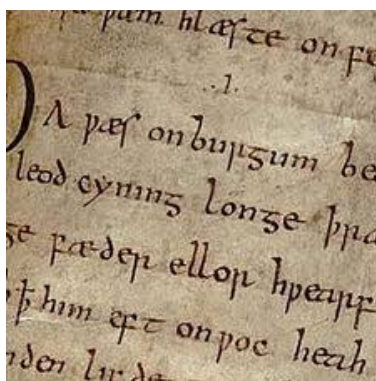 þam hlæste onfe
.I.
ÐA ƿæs onburgum be
leod cyning longe þra
ge fæder ellor hƿearf
ꝥ him eft onƿoc heah
nden lifde